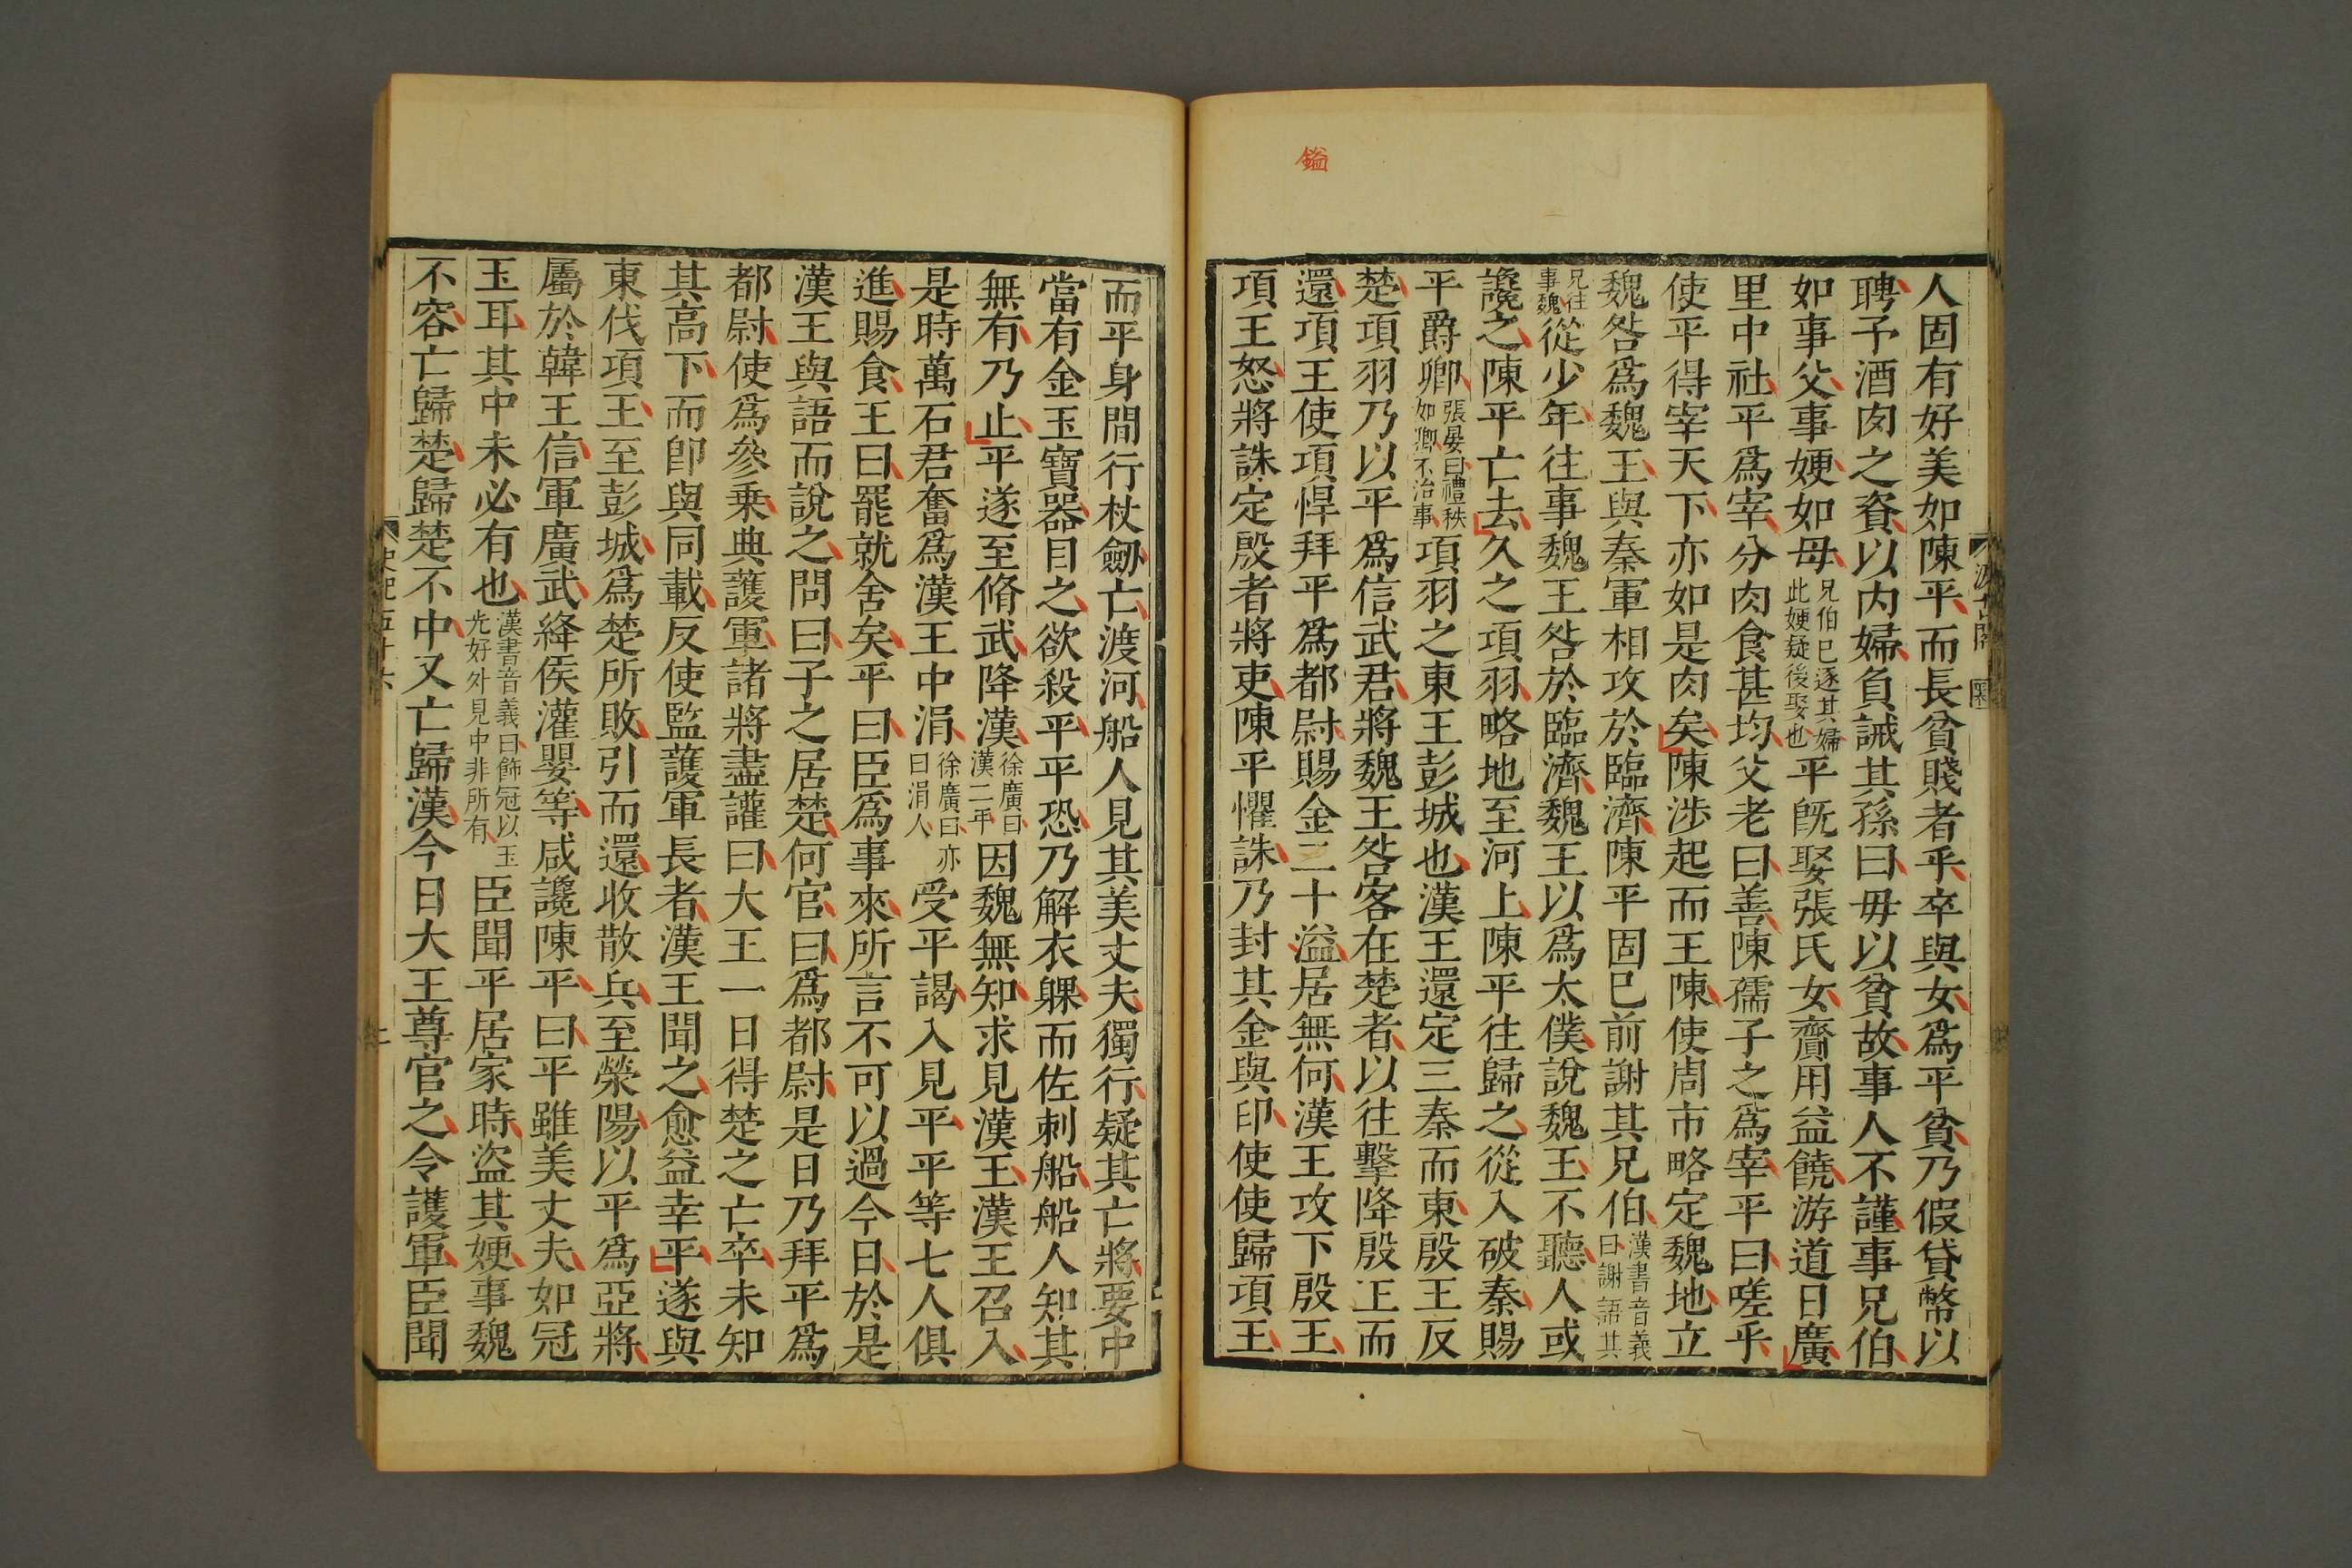 鎰
人固有好美如陳平而長貧賤者乎卒與女爲平貧乃假貸幣以
聘予酒肉之資以内婦負誡其孫曰毋以貧故事人不謹事兄伯
如事父事嫂如母兄伯已逐其婦此嫂疑後娶也平旣娶張氏女齎用益饒游道日廣
里中社平爲宰分肉食甚均父老曰善陳孺子之爲宰平曰嗟乎
使平得宰天下亦如是肉矣陳涉起而王陳使周市略定魏地立
魏咎爲魏王與秦軍相攻於臨濟陳平固已前謝其兄伯漢書音義曰謝語其
兄往事魏從少年往事魏王咎於臨濟魏王以爲太僕說魏王不聽人或
讒之陳平亡去久之項羽略地至河上陳平往歸之從入破秦賜
平爵卿張晏曰禮秩如卿不治事項羽之東王彭城也漢王還定三秦而東殷王反
楚項羽乃以平爲信武君將魏王咎客在楚者以往擊降殷王而
還項王使項悍拜平爲都尉賜金二十溢居無何漢王攻下殷王
項王怒將誅定殷者將吏陳平懼誅乃封其金與印使使歸項王
而平身間行杖劒亡渡河船人見其美丈夫獨行疑其亡將要中
當有金玉寶器目之欲殺平平恐乃解衣躶而佐刺船船人知其
無有乃止平遂至脩武降漢徐廣曰漢二年因魏無知求見漢王漢王召入
是時萬石君奮爲漢王中涓徐廣曰亦曰涓人受平謁入見平平等七人俱
進賜食王曰罷就舍矣平曰臣爲事來所言不可以過今日於是
漢王與語而說之問曰子之居楚何官曰爲都尉是日乃拜平爲
都尉使爲參乗典護軍諸將盡讙曰大王一日得楚之亡卒未知
其高下而即與同載反使監護軍長者漢王聞之愈益幸平遂與
東伐項王至彭城爲楚所敗引而還收散兵至滎陽以平爲亞將
屬於韓王信軍廣武絳侯灌嬰等咸讒陳平曰平雖美丈夫如冠
玉耳其中未必有也漢書音義曰飾冠以玉光好外見中非所有臣聞平居家時盜其嫂事魏
不容亡歸楚歸楚不中又亡歸漢今日大王尊官之令護軍臣聞